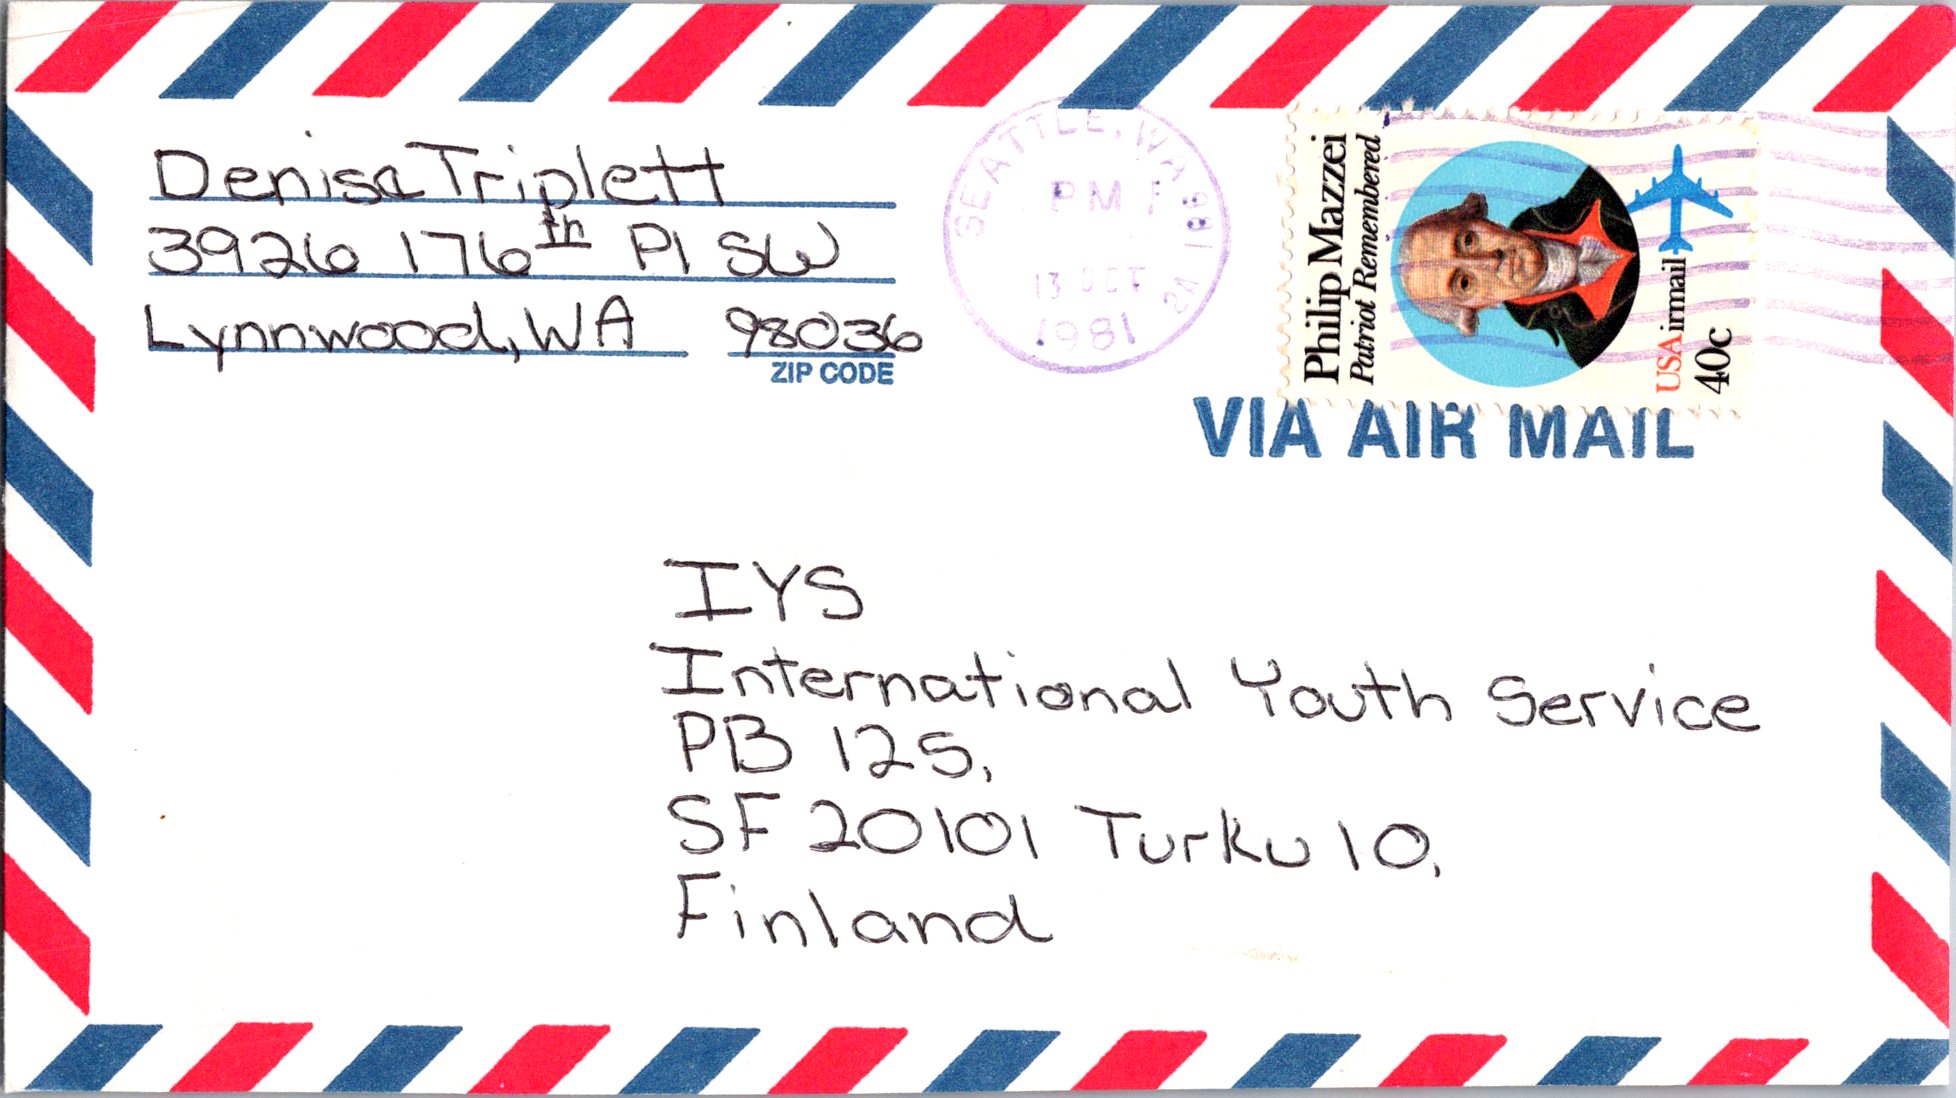 Denise Triplett
3926 176th Pl SW
Lynnwood, WA 98036
ZIP CODE
SEATTLE, WA 981 2A
PM
13 OCT
1981
Philip Mazzei
Patriot Remembered
USAirmail
40c
VIA AIR MAIL
IYS
International Youth Service
PB 125,
SF 20101 Turku 10,
Finland